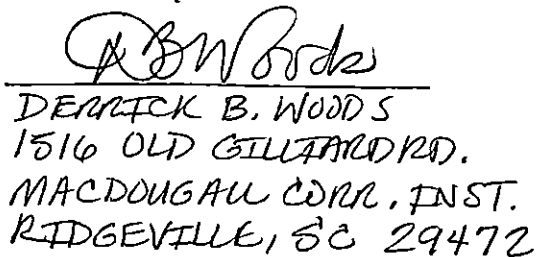 DB Woods
DERRICK B. WOODS
1516 OLD GILLIARD RD.
MACDOUGALL CORR. INST.
RIDGEVILLE, SC 29472